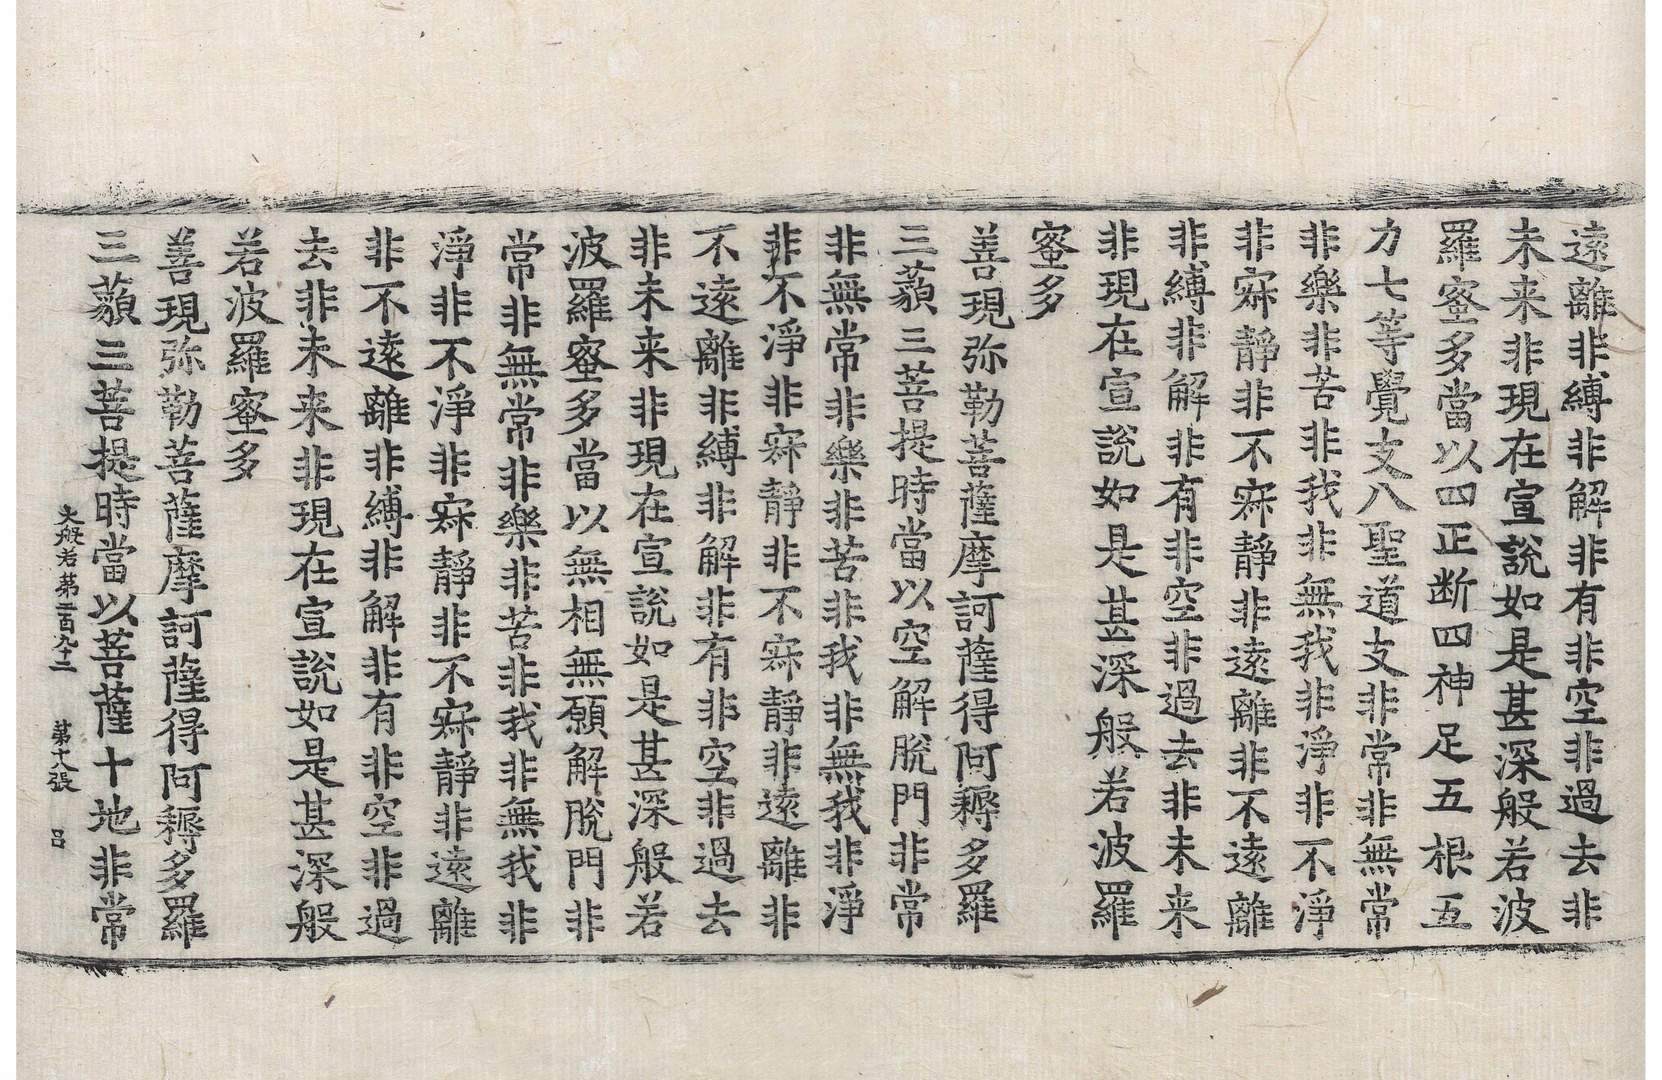 遠離非縛非解非有非空非過去非
未来非現在宣說如是甚深般若波
羅蜜多當以四正断四神足五根五
力七等覺支八聖道支非常非無常
非樂非苦非我非無我非淨非不淨
非寂靜非不寂靜非遠離非不遠離
非縛非解非有非空非過去非未来
非現在宣說如是甚深般若波羅
蜜多
善現弥勒菩薩摩訶薩得阿耨多羅
三藐三菩提時當以空解脫門非常
非無常非樂非苦非我非無我非淨
非不淨非寂靜非不寂靜非遠離非
不遠離非縛非解非有非空非過去
非未来非現在宣說如是甚深般若
波羅蜜多當以無相無願解脫門非
常非無常非樂非苦非我非無我非
淨非不淨非寂靜非不寂靜非遠離
非不遠離非縛非解非有非空非過
去非未来非現在宣說如是甚深般
若波羅蜜多
善現弥勒菩薩摩訶薩得阿耨多羅
三藐三菩提時當以菩薩十地非常
大般若第二百九十二 第十八張 呂